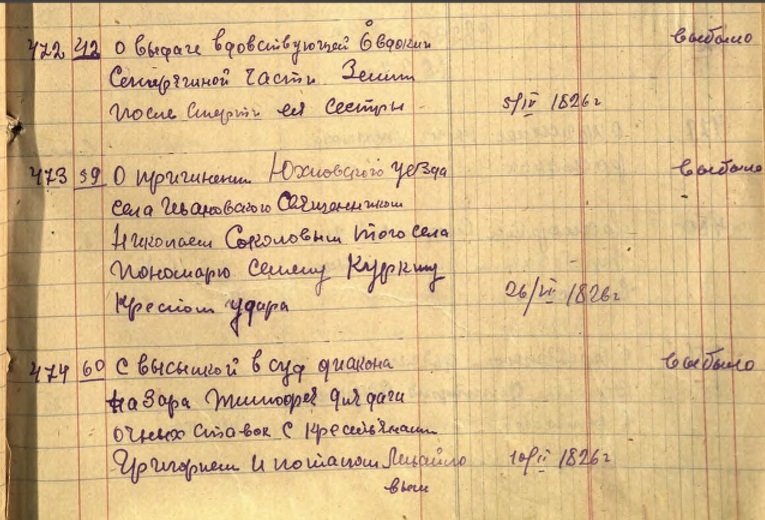 472 42 О выдаче вдовствующей Евдокии выбыло
части Земли
после смерти ея сестры 5/IV 1826 г
473 59 О причинении Юхновского уезда выбыло
села Ивановского Священником
Николаем Соколовым того села
пономарю Семену Куркину
крестом удара 26/VI 1826 г
474 60 С высылкой в суд диакона выбыло
Назара для дачи
очных ставок с крестьянами
Григорием и Потапом Михайло
выми 10/II 1826 г